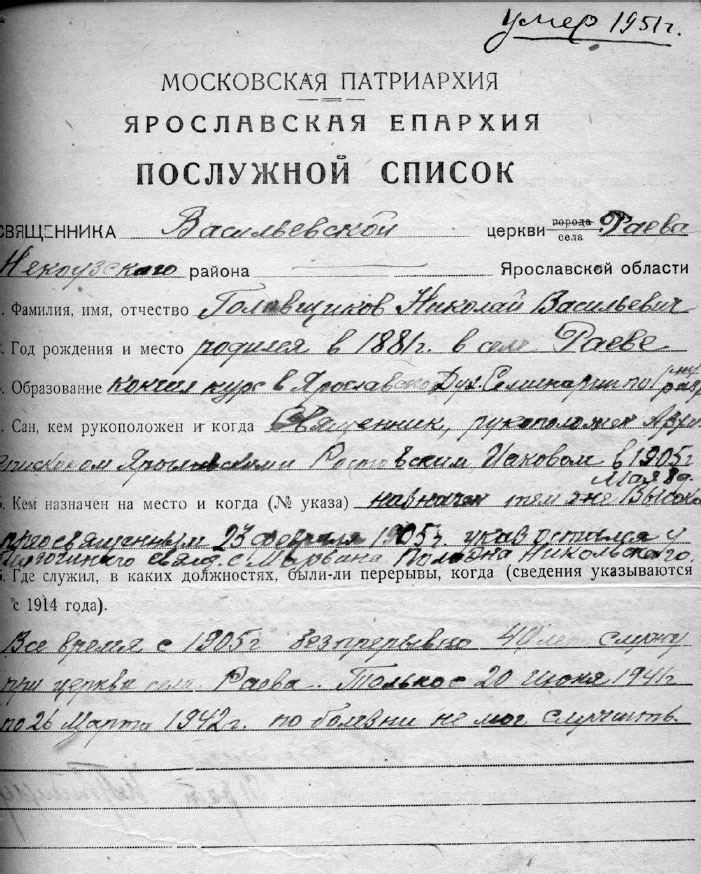 умер 1951г.
МОСКОВСКАЯ ПАТРИАРХИЯ
ЯРОСЛАВСКАЯ ЕПАРХИЯ
ПОСЛУЖНОЙ СПИСОК
СВЯЩЕННИКА Васильевской церкви города села Раева
Некоузского района Ярославской области
Фамилия, имя, отчество Головщиков Николай Васильевич
Год рождения и место родился в 1881г. в селе Раеве
Образование кончил курс в Ярославско Дух. Семинарии по
Сан, кем рукоположен и когда Священник, рукоположен Архи
епископом Ярославскими Ростовским Иаковом в 1905г
Мая 8д.
Кем назначен на место и когда (№ указа) назначен тем же Высоко
преосвященным 23 февраля 1905г указ остался у
Никольского.
Где служил, в каких должностях, были-ли перерывы, когда (сведения указываются
с 1914 года).
Все время с 1905г безпрерывно 40 лет служу
при церкви села Раева. Только с 20 Июня 1941г
по 26 Марта 1942г. по болезни не мог служить.